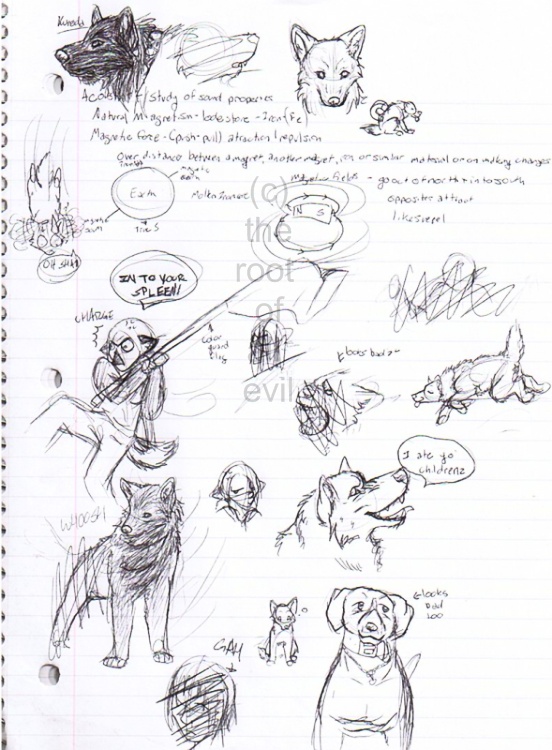 Acoustics / study of sound properties
Natural magnetism - lodestone - Iron (Fe
Magnetic force - (push-pull) attraction / repulsion
over distance between a magnet, another magnet, iron or similar material or on moving charges
magnetic north
Earth
magnetic south
true S
Magnetic fields - go out of north + into south
opposites attract
likes repel
N S
OH SHI
IN TO YOUR
SPLEEN!
CHARGE
color
guard
flag
looks bad
I ate yo
childrenz
WHOOSH
looks
bad
too
GAY
(c)
the
root
of
evil